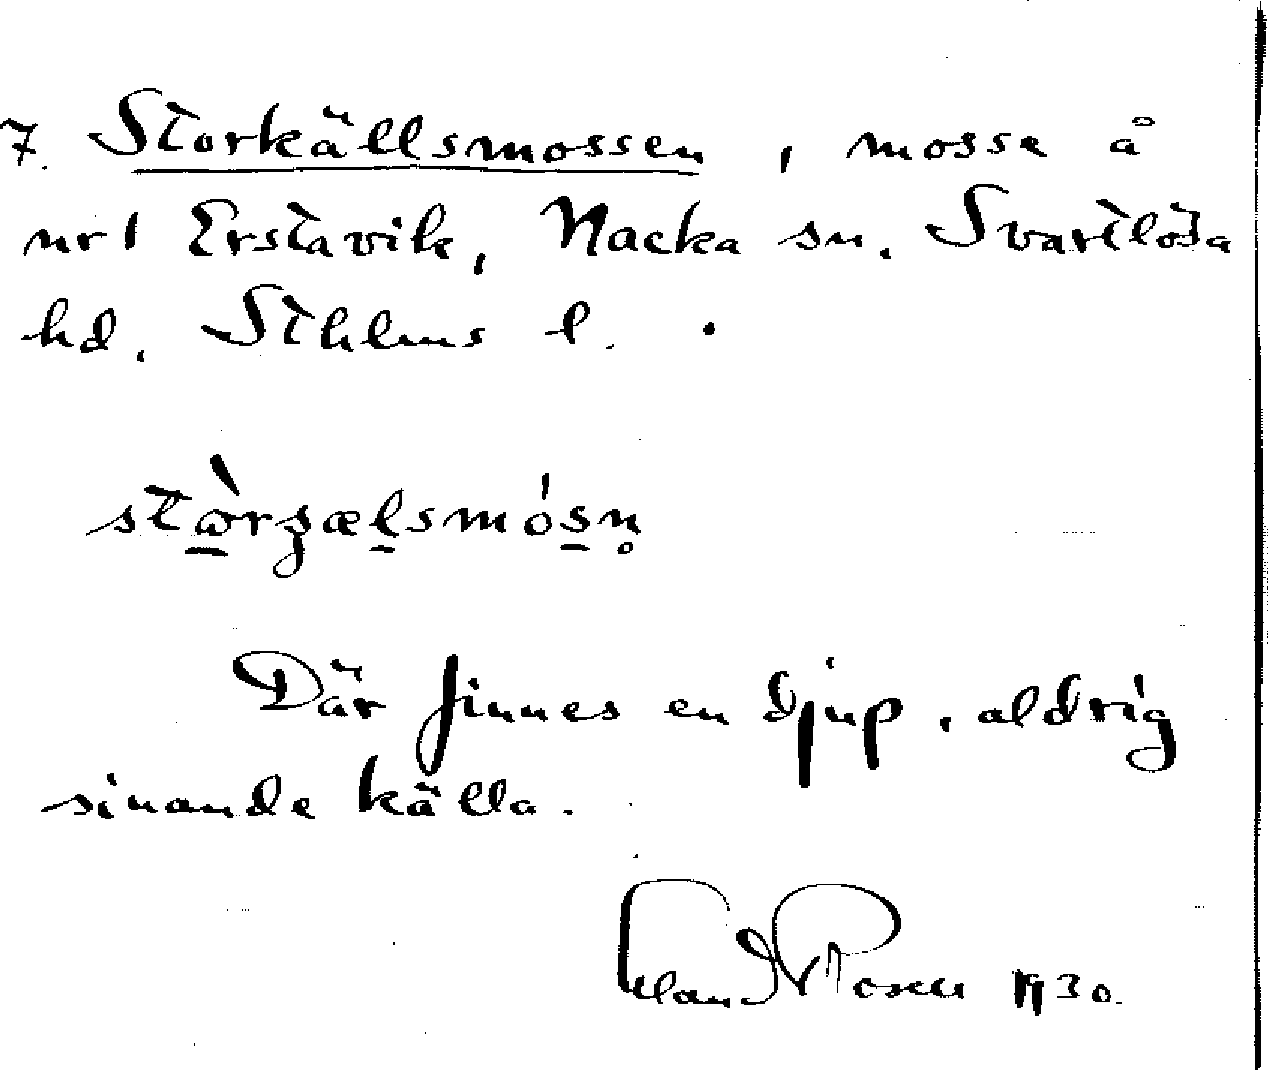 7. Storkällsmossen, mosse å
nr 1 Erstavik, Nacka sn. Svartlösa
hd. Sthlms l.
Där finnes en djup, aldrig
sinande källa.
1930.